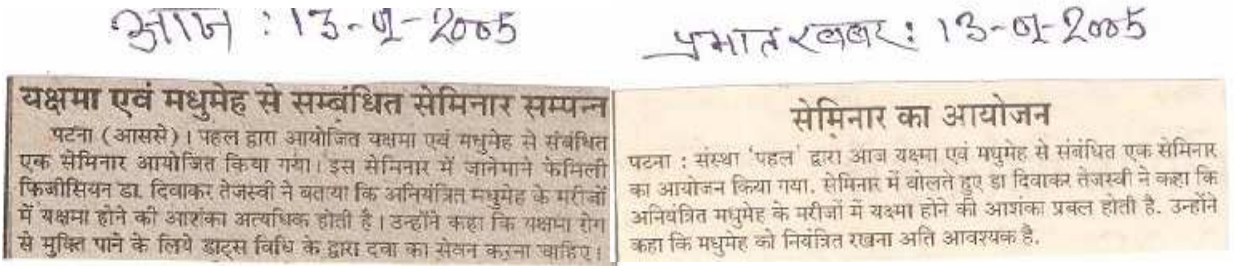 आज : 13-9-2005
यक्षमा एवं मधुमेह से सम्बंधित सेमिनार सम्पन्न
पटना (आससे)। पहल द्वारा आयोजित यक्षमा एवं मधुमेह से संबंधित
एक सेमिनार आयोजित किया गया। इस सेमिनार में जानेमाने फेमिली
फिजीसियन डा. दिवाकर तेजस्वी ने बताया कि अनियंत्रित मधुमेह के मरीजों
में यक्षमा होने की आशंका अत्यधिक होती है। उन्होंने कहा कि यक्षमा रोग
से मुक्ति पाने के लिये डाट्स विधि के द्वारा दवा का सेवन करना चाहिए।
प्रभात खबर : 13-9-2005
सेमिनार का आयोजन
पटना : संस्था 'पहल' द्वारा आज यक्ष्मा एवं मधुमेह से संबंधित एक सेमिनार
का आयोजन किया गया. सेमिनार में बोलते हुए डा दिवाकर तेजस्वी ने कहा कि
अनियंत्रित मधुमेह के मरीजों में यक्ष्मा होने की आशंका प्रबल होती है. उन्होंने
कहा कि मधुमेह को नियंत्रित रखना अति आवश्यक है.